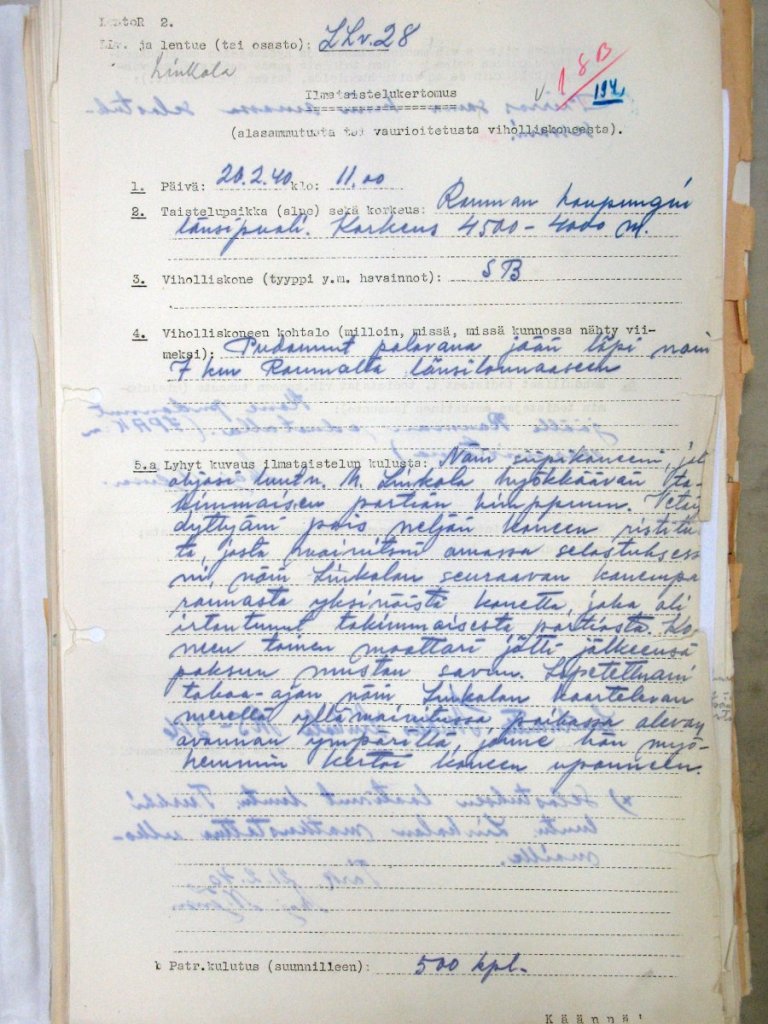 LentoR 2.
LLv. ja lentue (tai osasto): LLv.28
Linkola
V. 1 SB
194.
Ilmataistelukertomus
(alasammutusta tai vaurioitetusta vihollískoneesta).
1. Päivä: 20.2.40 klo: 11.00
2. Taistelupaikka (alue) sekä korkeus: Rauman kaupungin
länsipuoli. Korkeus 4500 - 4000 m.
3. Viholliskone (tyyppi y.m. havainnot): SB
4. Viholliskoneen kohtalo (milloin, missä, missä kunnossa nähty vii-
meksi): Pudonnut palavana jään läpi noin
7 km Raumalta länsilounaaseen
5.a Lyhyt kuvaus ilmataistelun kulusta: Näin siipikoneeni, jot
ohjasi luutn. M. Linkola hyökkäävän ta-
kimmaisen partion kimppuun. Vetäy
dyttyäni pois neljän koneen ristitu-
ta, josta mainitsin omassa selostuksess
ni, näin Linkolan seuraavan kauempa
rannasta yksinäistä konetta, joka oli
irtautunut takimmaisesta partiosta. Ko
neen toinen moottori jätti jälkeensä
paksun mustan savun. Lopetettuani
takaa-ajon näin Linkolan kaartelevan
merellä yllämainitussa paikassa olevan
avannon ympärillä, jonne hän myö-
hemmin kertoi koneen uponneen.
b Patr.kulutus (suunnilleen): 500 kpl.
Käännä!